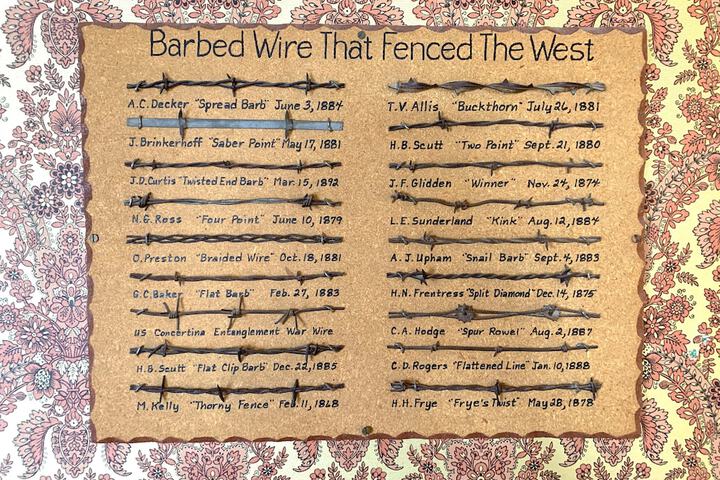 Barbed Wire That Fenced The West
A.C. Decker "Spread Barb" June 3, 1884
J. Brinkerhoff "Saber Point" May 17, 1881
J.D. Curtis "Twisted End Barb" Mar. 15, 1892
N.G. Ross "Four Point" June 10, 1879
O. Preston "Braided Wire" Oct. 18, 1881
G.C. Baker "Flat Barb" Feb. 27, 1883
US Concertina Entanglement War Wire
H.B. Scutt "Flat Clip Barb" Dec. 22, 1885
M. Kelly "Thorny Fence" Feb. 11, 1868
T.V. Allis "Buckthorn" July 26, 1881
H.B. Scutt "Two Point" Sept. 21, 1880
J.F. Glidden "Winner" Nov. 24, 1874
L.E. Sunderland "Kink" Aug. 12, 1884
A.J. Upham "Snail Barb" Sept. 4, 1883
H.N. Frentress "Split Diamond" Dec. 14, 1875
C.A. Hodge "Spur Rowel" Aug. 2, 1887
C.D. Rogers "Flattened Line" Jan. 10, 1888
H.H. Frye "Frye's Twist" May 28, 1878